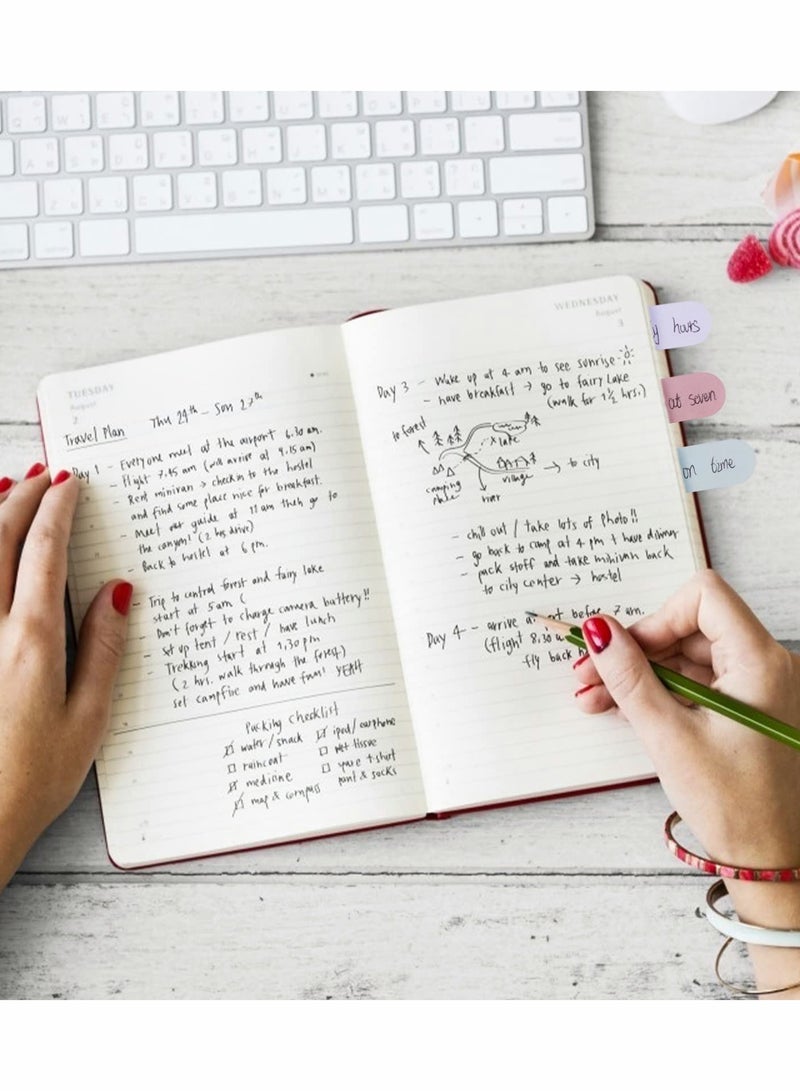 TUESDAY
August
2
Travel Plan Thu 24th - Sun 27th
Day 1 - Everyone meet at the airport 6.30 am.
- Flight 7.45 am (will arrive at 9.15 am)
- Rent minivan → check in to the hostel
and find some place nice for breakfast.
- Meet our guide at 11 am then go to
the canyon! (2 hrs drive)
- Back to hostel at 6 pm.
- Trip to central forest and fairy lake
start at 5 am (
- Don't forget to charge camera battery!!
- Set up tent / rest / have lunch
- Trekking start at 1.30 pm
(2 hrs. walk through the forest)
set campfire and have fun! YEAH
Packing Checklist
water / snack
raincoat
medicine
map & compass
ipod / earphone
wet tissue
t-shirt
pant & socks
WEDNESDAY
August
3
Day 3 - Wake up at 4 am to see sunrise
- have breakfast → go to fairy Lake
(walk for 1 1/2 hrs.)
to forest
lake
camping
place
village
river
→ to city
- chill out / take lots of photo!!
- go back to camp at 4 pm + have dinner
- pack stuff and take minivan back
to city center → hostel
Day 4 - arrive before 7 am.
(flight 8.30
fly back
y hours
at seven
on time